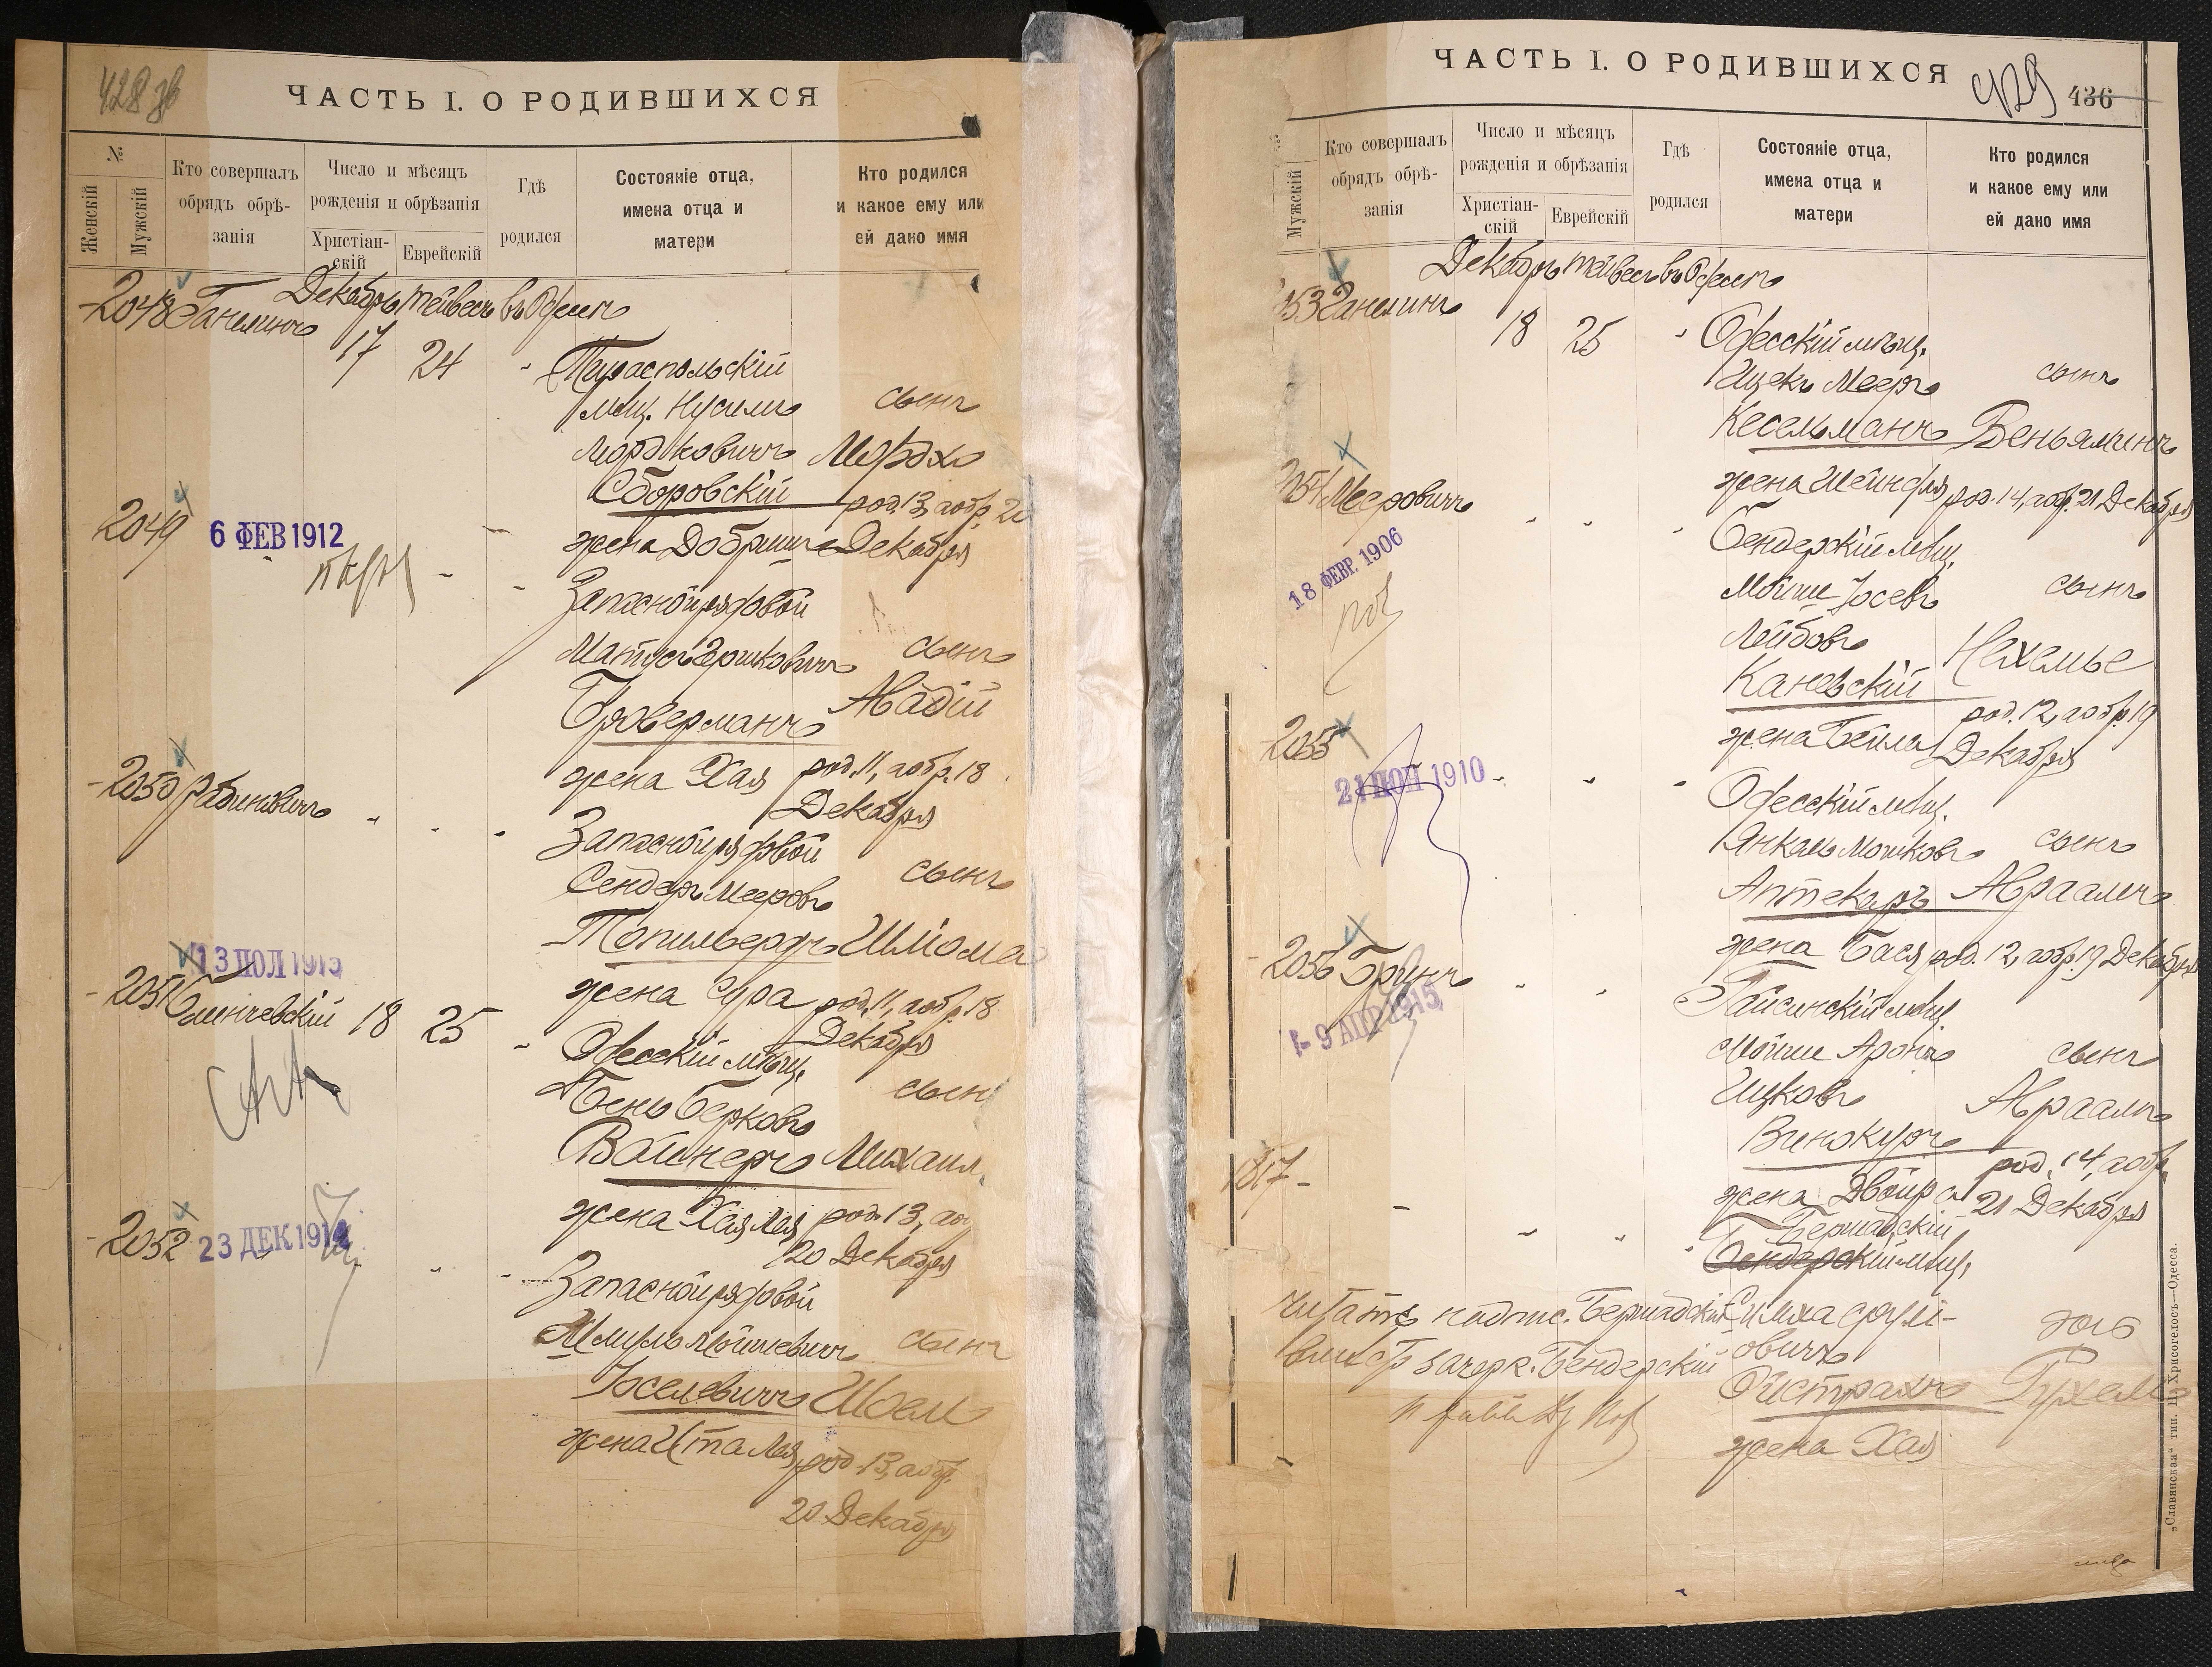 428 зв
ЧАСТЬ I. О РОДИВШИХСЯ
№
Женскій
Мужскій
Кто совершалъ
обрядъ обрѣ-
занія
Число и мѣсяцъ
рожденія и обрѣзанія
Христіан-
скій
Еврейскій
Гдѣ
родился
Состояніе отца,
имена отца и
матери
Кто родился
и какое ему или
ей дано имя
Декабрь тейвесъ въ Одессѣ
2048 Ганелинъ
17 24 Тираспольскій
мѣщ. Нусимъ сынъ
Мордковичъ Мордхо
Сборовскій род. 13, а обр. 20
жена Добрише Декабря
2049 6 ФЕВ 1912
Запасной рядовой
Матусъ Эршковичъ сынъ
Броверманъ Авадій
жена Хая род. 11, а обр. 18
Декабря
2050 Рабиновичъ
Запасной рядовой
Сендеръ Мееровъ сынъ
Топильбергъ Шліома
жена Сура род. 11, а обр. 18
Декабря
13 ІЮЛ 1915
2051 18 25 Одесскій мѣщ.
Бень Берковъ сынъ
Вайнеръ Михаил.
жена Хая Лея род. 13, а об
20 Декабря
2052 23 ДЕК 1914
Запасной рядовой
Шмуль Мошкевичъ сынъ
Іоселевичъ Шоел
жена Ита Лея род. 13, а обр.
20 Декабря
ЧАСТЬ I. О РОДИВШИХСЯ
429 436
Мужскій
Кто совершалъ
обрядъ обрѣ-
занія
Число и мѣсяцъ
рожденія и обрѣзанія
Христіан-
скій
Еврейскій
Гдѣ
родился
Состояніе отца,
имена отца и
матери
Кто родился
и какое ему или
ей дано имя
Декабрь тейвесъ въ Одессѣ
53 Ганелинъ
18 25 Одесскій мѣщ.
Ицекъ Мееръ сынъ
Кесельманъ Веньяминъ
жена Шейндля род. 14, а обр. 21 Декабря
2054 Мееровичъ
18 ФЕВР. 1906
Бендерскій мѣщ.
Мойше Іосевъ сынъ
Лейбовъ Нехемье
Каневскій
род. 12, а обр. 19
жена Бейла Декабря
2055
21 ІЮН 1910
Одесскій мѣщ.
Янкель Мошковъ сынъ
Аптекарь Авраамъ
жена Бася род. 12, а обр. 19 Декабря
2056 Бринъ
- 9 АПР 1915
Гайсинскій мѣщ.
Мойше Аронъ сынъ
Ицковъ Авраамъ
Винокуръ
род. 14, а обр.
жена Двойра 21 Декабря
1817
Бершадскій
Бендерскій мѣщ.
Читать надпис. Бершадскій Симха Сруль-
вмѣсто зачерк. Бендерскій овичъ дочь
Ойстрахъ Рухель
жена Хая
„Славянская“ тип. Н. Хрисогелосъ—Одесса.